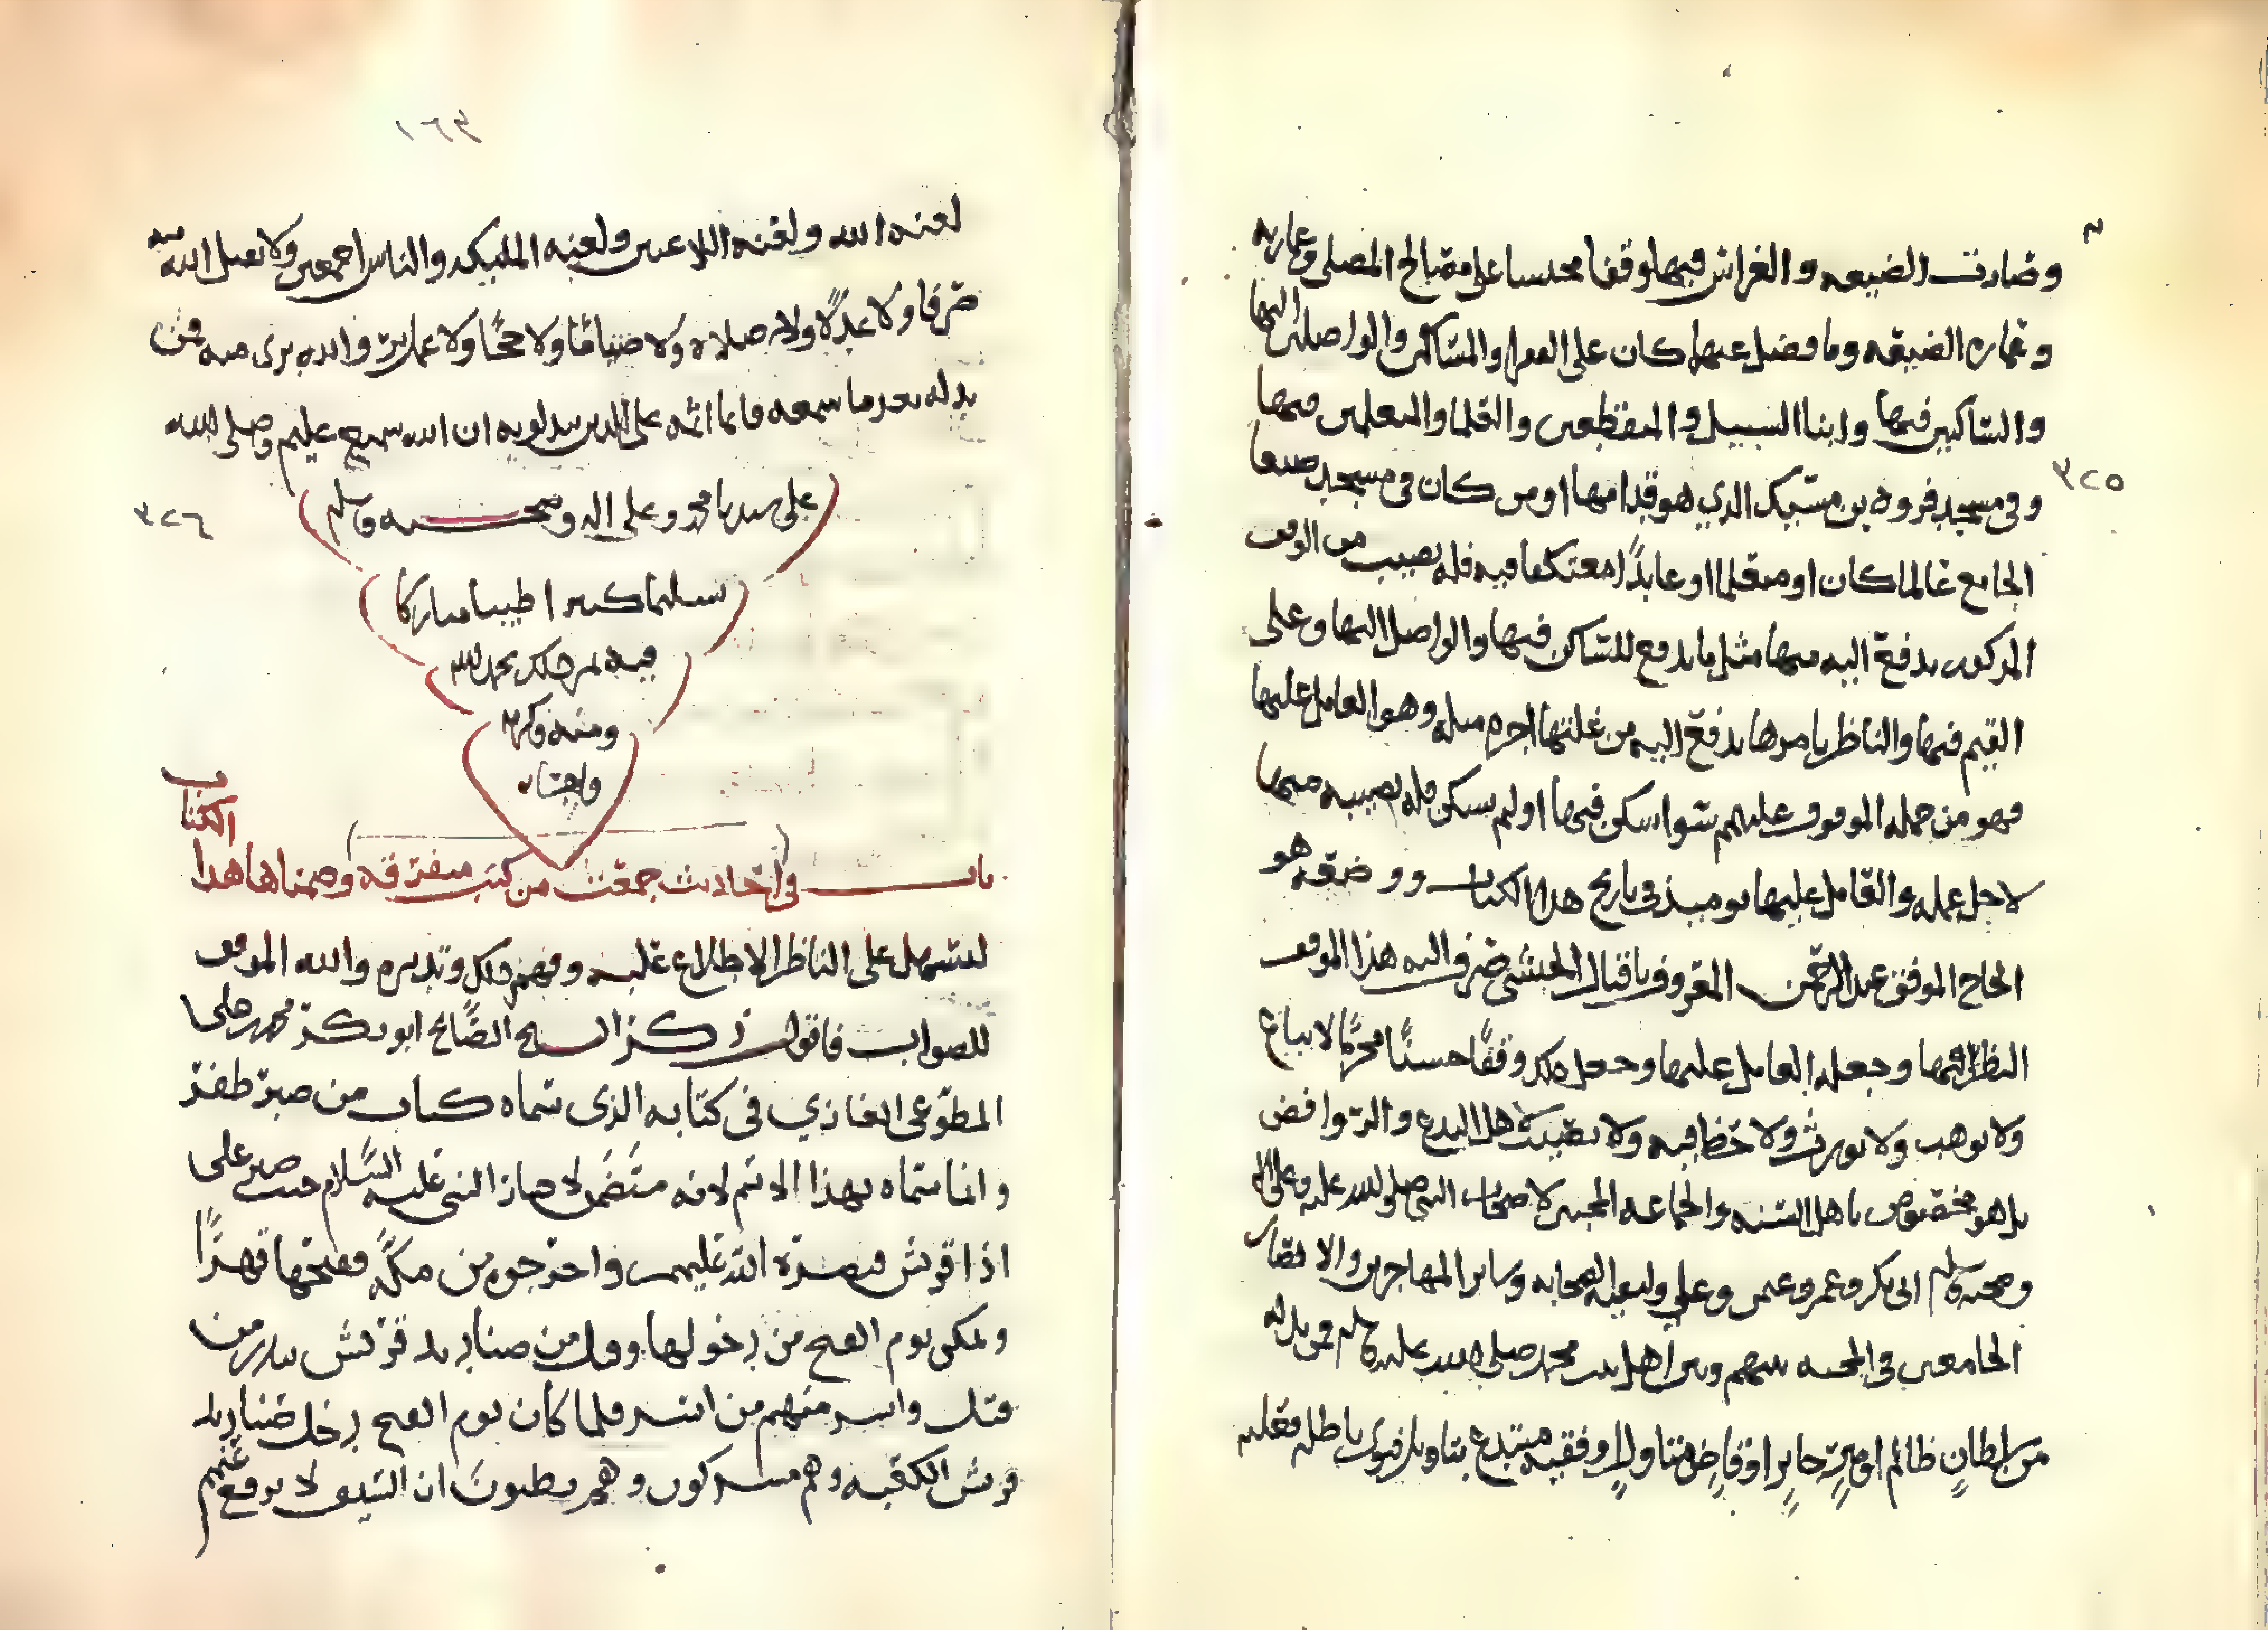 وصارت الضيعه والغراس فيها وقفا محبسا على مصالح المصلى وعمارته
وعماره الضيعه وما فضل عنها كان على الفقرا والمساكين والواصلين اليها
والساكنين فيها وابنا السبيل والمنقطعين والعلما والمتعلمين فيها
وفي مسجد فروه بن مسيك الذي هو قدامها او من كان في مسجد صنعا
٣٢٥
الجامع عالما كان او متعلما او عابدًا معتكفا فيه فله نصيب من الوقف
المذكور يدفع اليه منها مثل ما يدفع للساكن فيها والواصل اليها وعلى
القيم فيها والناظر بامرها يدفع اليه من غلتها اجره مثله وهو العامل عليها
فهو من جمله الموقوف عليهم سوا سكن فيها او لم يسكن فله نصيبه منها
لاجل عمله والعامل عليها يوميذ في تاريخ هذا الكتاب ووضعه هو
الحاج الموفق عبد الرحمن المعروف باقبال الحبشي صرف اليه هذا الموقف
النظر فيها وجعله العامل عليها وجعل ذلك وقفًا حبسًا محرمًا لا يباع
ولا يوهب ولا يورث ولا حظا فيه ولا نصيب لاهل البدع والروافض
بل هو مخصوص باهل السنه والجماعه المحبين لاصحاب النبي صلى الله عليه وعلى اله
وصحبه وسلم ابي بكر وعمر وعثمن وعلي ولبقيه الصحابه وساير المهاجرين والانصار
الجامعين في المحبه بينهم وبين اهل بيت محمد صلى الله عليه وسلم فمن بدله
من سلطانٍ ظالم او اميرٍ جايرٍ او قاضٍ متاولٍ او فقيه مبتدع بتاويل فتوى باطله فعليه
١٦٣
لعنه الله ولعنه اللاعنين ولعنه المليكه والناس اجمعين ولا يقبل الله منه
صرفا ولا عدلًا ولا صلاه ولا صيامًا ولا حجًا ولا عمل بر والله بري منه فمن
بدله بعد ما سمعه فانما اثمه على الذين يبدلونه ان الله سميع عليم وصلى الله
على سيدنا محمد وعلى اله وصحبه وسلم
٣٢٦
تسليما كثيرا طيبا مباركا
فيه تم ذلك بحمد الله
ومنه وكرمه
واحسانه
باب في احاديث جمعت من كتب متفرقه وضمناها هذا الكتاب
ليسهل على الناظر الاطلاع عليه وفهم ذلك وتدبره والله الموفق
للصواب فاقول ذكر الشيخ الصَّالح ابو بكر محمد بن علي
المطوّعى الغازي في كتابه الذى سماه كتاب من صبر ظفر
وانما سماه بهذا الاسم لانه متضمن لاخبار النبي عليه السَّلام حيث صبر على
اذا قريش فنصره الله عليهم واخرجوه من مكه ففتحها قهرًا
وتمكن يوم الفتح من دخولها وقتل من صناديد قريش ببدر من
قتل واسر منهم من اسر فلما كان يوم الفتح دخل صناديد
قريش الكعبه وهم مسركون وهم يظنون ان السيف لا يرفع عنهم